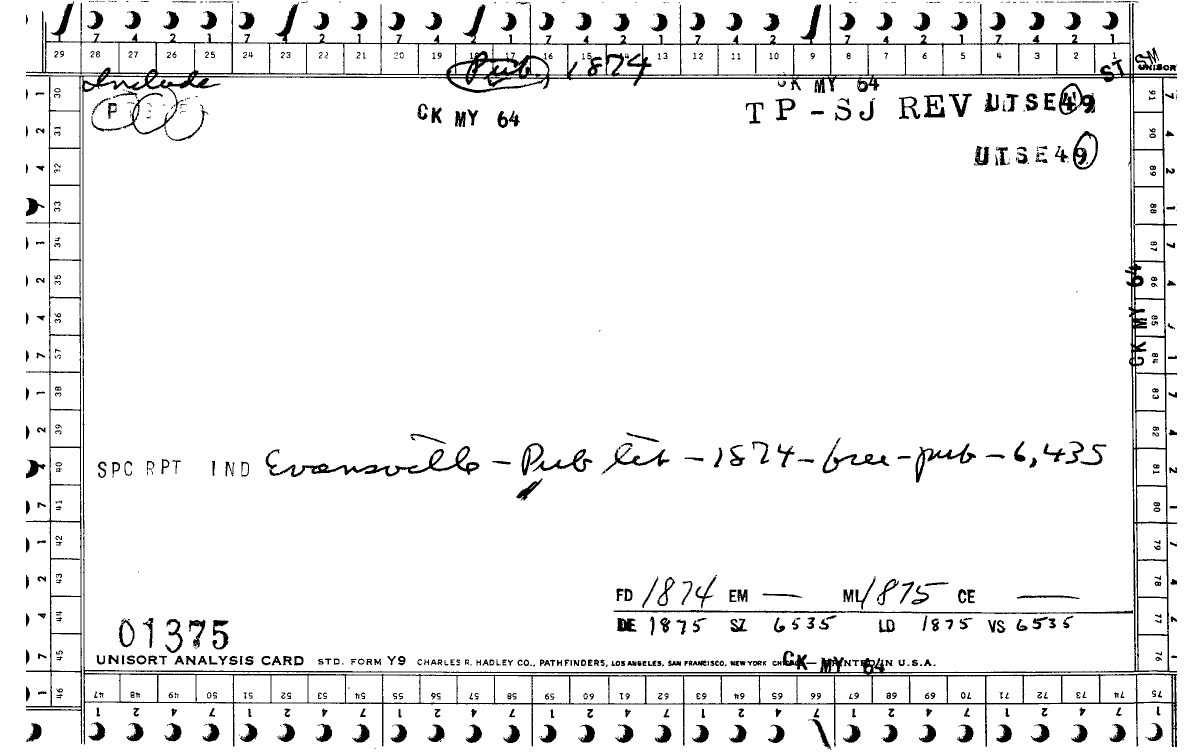 7 4 2 1 7 4 2 1 7 4 2 1 7 4 2 1 7 4 2 1 7 4 2 1 7 4 2 1
29 28 27 26 25 24 23 22 21 20 19 18 17 16 15 14 13 12 11 10 9 8 7 6 5 4 3 2 1
Pub. 1874
ST
SM
UNISORT
Include
CK MY 64
P
CK MY 64
TP-SJ REV UTSE49
UTSE49
1 30
2 31
4 32
33
1 34
2 35
4 36
7 37
1 38
2 39
40
7 41
1 42
2 43
4 44
7 45
1 46
91 7
90 4
89 2
88 1
87 7
86 4
85
84 1
83 7
82 4
81 2
80 1
79 7
78 4
77 2
76 1
CK MY 64
SPC RPT IND Evansville - Pub lib - 1874 - free - pub - 6,435
FD 1874 EM — ML 1875 CE —
DE 1875 SZ 6535 LD 1875 VS 6535
01375
UNISORT ANALYSIS CARD STD. FORM Y9 CHARLES R. HADLEY CO., PATHFINDERS, LOS ANGELES, SAN FRANCISCO, NEW YORK PRINTED IN U.S.A.
CK MY 64
47 48 49 50 51 52 53 54 55 56 57 58 59 60 61 62 63 64 65 66 67 68 69 70 71 72 73 74 75
1 2 4 7 1 2 4 7 1 2 4 7 1 2 4 7 1 2 4 7 1 2 4 7 1 2 4 7 1